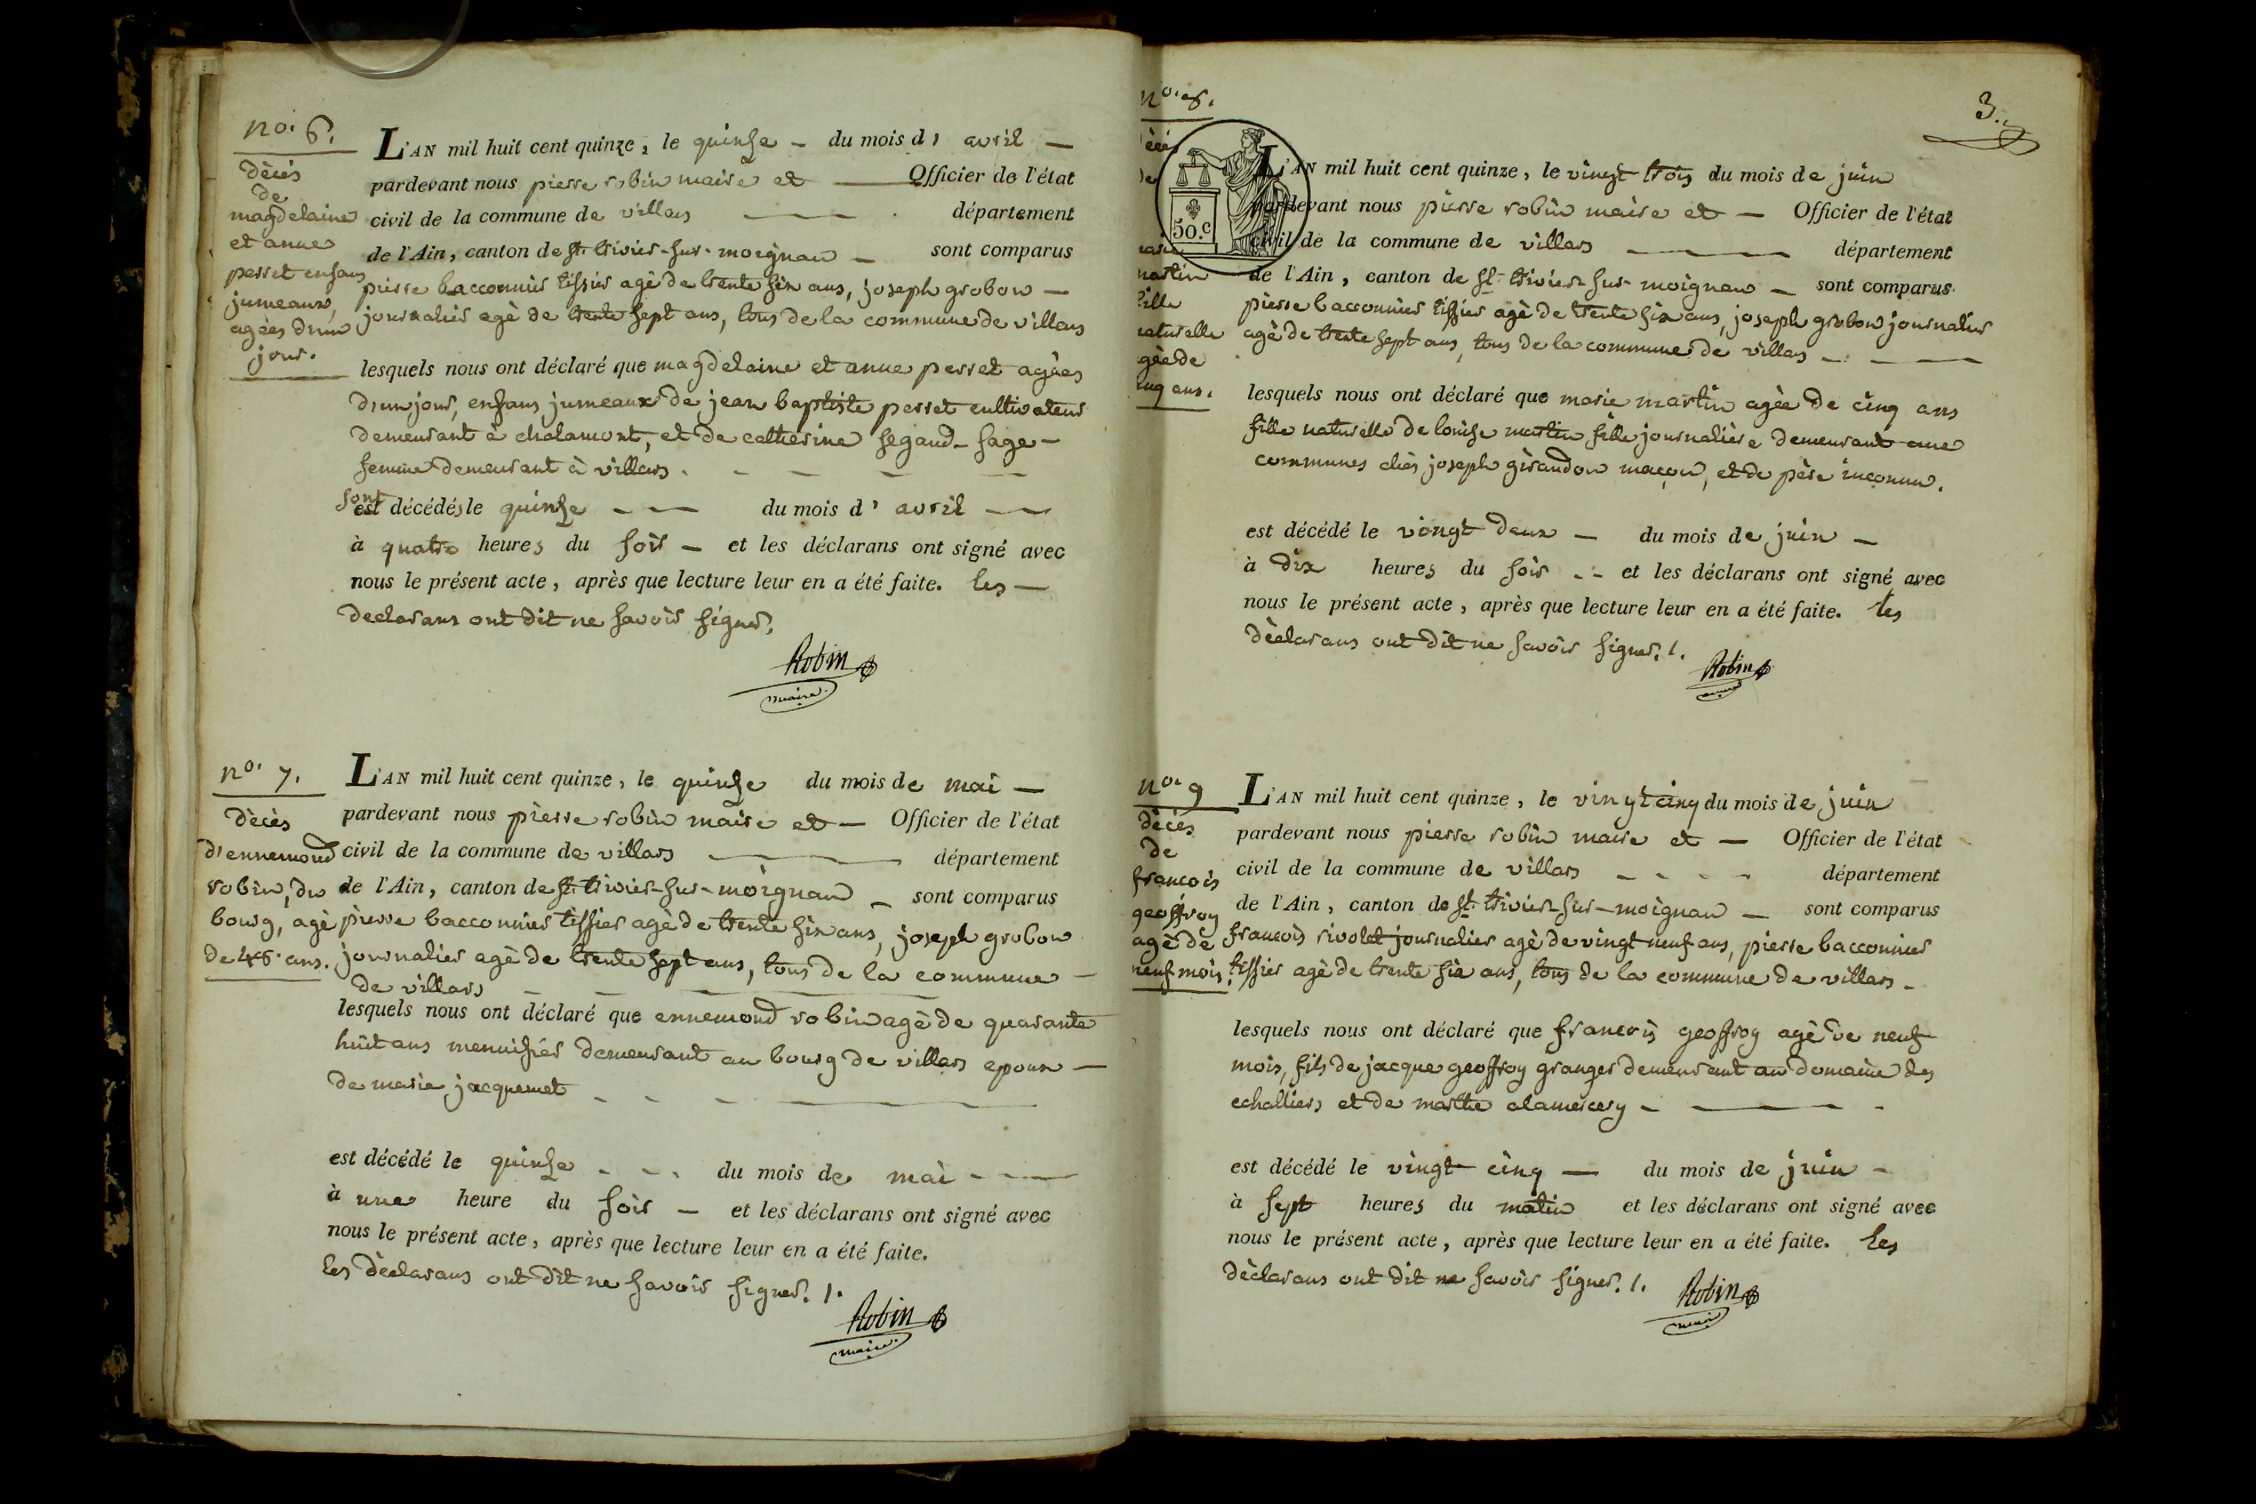 no. 6.
décés
de
magdelaine
et anne
perret enfans
jumeaux,
agées d'un
jour.
L'AN mil huit cent quinze, le quinse – du mois d' avril –
pardevant nous pierre robin maire et — Officier de l'état
civil de la commune de villars — département
de l'Ain, canton de st. trivier-sur-moignan – sont comparus
pierre bacconnier tissier agé de trente six ans, joseph grobon –
journalier agé de trente sept ans, tous de la commune de villars
lesquels nous ont déclaré que magdelaine et anne perret agées
d'un jour, enfans jumeaux de jean baptiste perret cultivateur
demeurant à chalamont, et de catherine segaud – sage –
femme demeurant à villars. – – – –
sont
est décédés le quinse – – du mois d' avril – –
à quatre heures du soir – et les déclarans ont signé avec
nous le présent acte, après que lecture leur en a été faite. les –
declarans ont dit ne savoir signer.
Robin
maire
no. 7.
décés
d'ennemond
robin, du
bourg, agé
de 48 ans.
L'AN mil huit cent quinze, le quinse du mois de mai –
pardevant nous pierre robin maire et – Officier de l'état
civil de la commune de villars — département
de l'Ain, canton de st. trivier-sur-moignan – sont comparus
pierre bacconnier tissier agé de trente six ans, joseph grobon
journalier agé de trente sept ans, tous de la commune –
de villars – – –
lesquels nous ont déclaré que ennemond robin agé de quarante
huit ans menuisier demeurant au bourg de villars epoux –
de marie jacquemet – – – —
est décédé le quinse – – . du mois de mai – – –
à une heure du soir – et les déclarans ont signé avec
nous le présent acte, après que lecture leur en a été faite.
les déclarans ont dit ne savoir signer. /.
Robin
maire
3.
no. 8.
martin
fille
naturelle
cinq ans.
50.c
L'AN mil huit cent quinze, le vingt trois du mois de juin
pardevant nous pierre robin maire et – Officier de l'état
civil de la commune de villars — département
de l'Ain, canton de st. trivier-sur-moignan – sont comparus
pierre bacconnier tissier agé de trente six ans, joseph grobon journalier
agé de trente sept ans, tous de la commune de villars – . —
lesquels nous ont déclaré que marie martin agée de cinq ans
fille naturelle de louise martin fille journalière demeurant aux
communes chés joseph girandon maçon, et de père inconnu.
est décédé le vingt deux – du mois de juin –
à dix heures du soir – – et les déclarans ont signé avec
nous le présent acte, après que lecture leur en a été faite. les
déclarans ont dit ne savoir signer. /.
Robin
maire
no. 9
décés
de
francois
geoffroy
agé de
neuf mois.
L'AN mil huit cent quinze, le vingt cinq du mois de juin
pardevant nous pierre robin maire et – Officier de l'état
civil de la commune de villars – – – – département
de l'Ain, canton de st. trivier-sur-moignan – sont comparus
francois rivolet journalier agé de vingt neuf ans, pierre bacconnier
tissier agé de trente six ans, tous de la commune de villars –
lesquels nous ont déclaré que francois geoffroy agé de neuf
mois, fils de jacque geoffroy granger demeurant au domaine des
echalliers et de marthe alamercery – — –
est décédé le vingt cinq — du mois de juin –
à sept heures du matin et les déclarans ont signé avec
nous le présent acte, après que lecture leur en a été faite. les
déclarans ont dit ne savoir signer. /.
Robin
maire